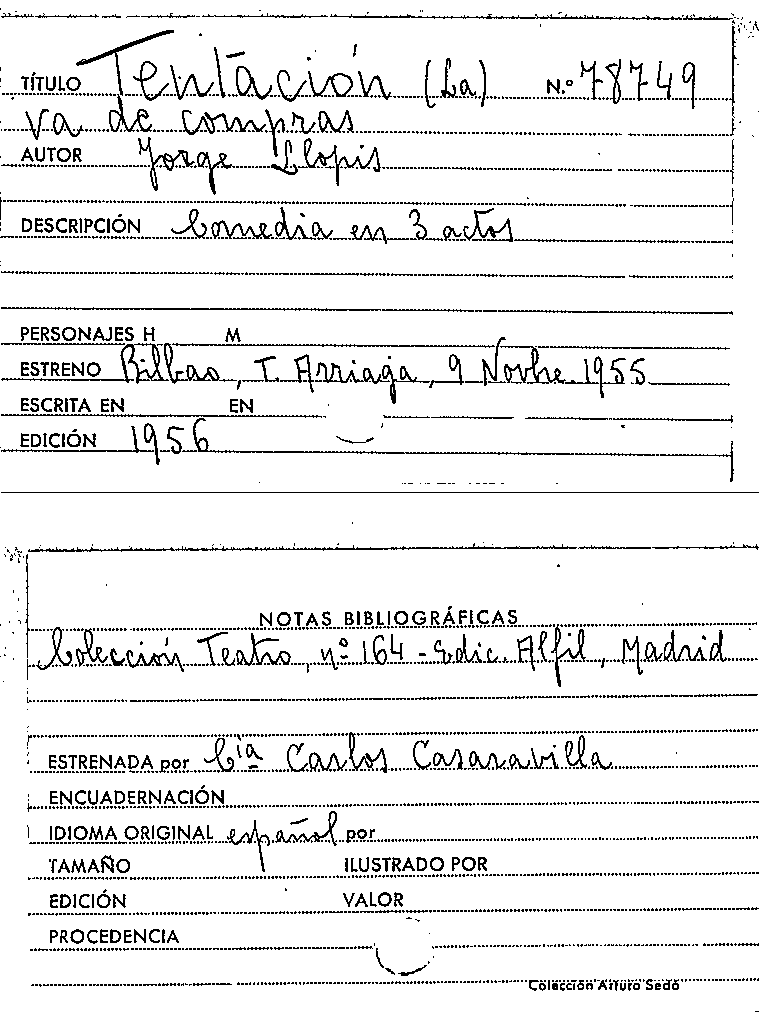 TÍTULO Tentación (La) N.º 78749
va de compras
AUTOR Jorge Llopis
DESCRIPCIÓN Comedia en 3 actos
PERSONAJES H M
ESTRENO Bilbao, T. Arriaga, 9 Novbe. 1955
ESCRITA EN EN
EDICIÓN 1956
NOTAS BIBLIOGRÁFICAS
Colección Teatro, nº 164 - Edic. Alfil, Madrid
ESTRENADA por Cía Carlos Casaravilla
ENCUADERNACIÓN
IDIOMA ORIGINAL español por
TAMAÑO ILUSTRADO POR
EDICIÓN VALOR
PROCEDENCIA
Colección Arturo Sedó